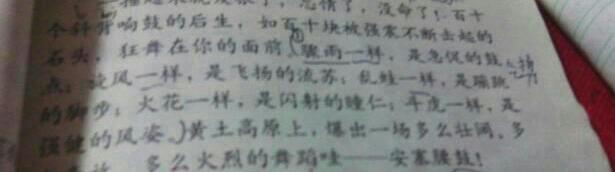 捶起来就发狠了，忘情了，没命了！百十
个斜背响鼓的后生，如百十块被强震不断击起的
石头，狂舞在你的面前。骤雨一样，是急促的鼓
点；旋风一样，是飞扬的流苏；乱蛙一样，是蹦跳
的脚步；火花一样，是闪射的瞳仁；斗虎一样，是
强健的风姿。黄土高原上，爆出一场多么壮阔、多
多么火烈的舞蹈哇——安塞腰鼓！